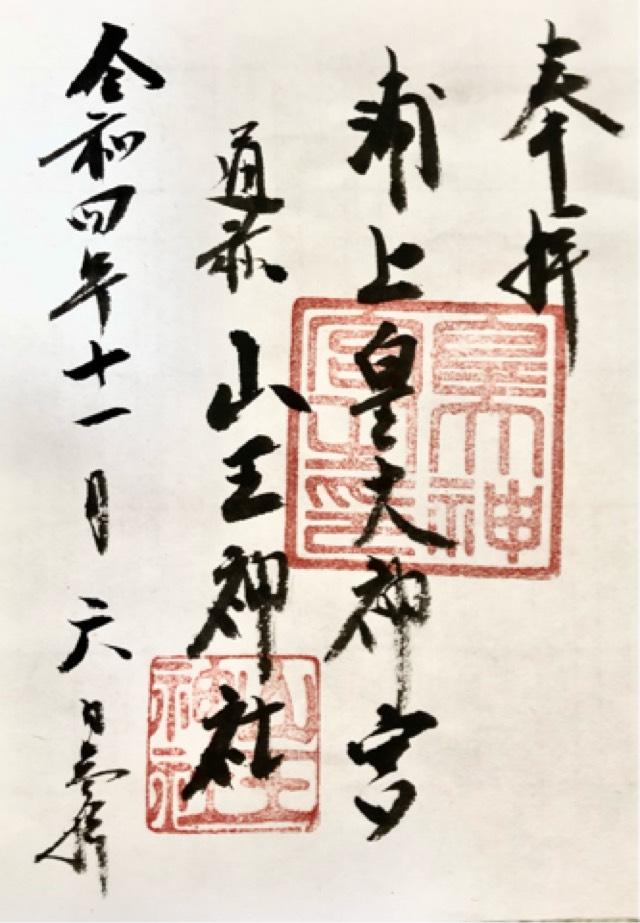 奉拝
浦上皇大神宮
通称
山王神社
令和四年十一月六日参拝
皇大神宮之印
山王神社